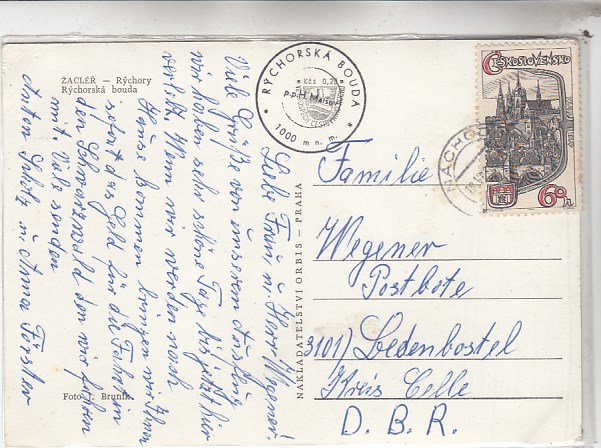 ŽACLÉŘ — Rýchory
Rýchorská bouda
RÝCHORSKÁ BOUDA
Kčs 0,20
1000 m n. m.
ČESKOSLOVENSKO
60 h
NÁCHOD
Liebe Frau u. Herr Wegener!
Viele Grüße von unserem Ausflug
wir haben sehr schöne Tage bis jetzt hier
verlebt. Wenn wir werden nach
Hause kommen bringen wir Ihnen
sofort das Geld für die Fahrt in
den Schwarzwald den wir fahren
mit. Viele senden
Anton u. Anna Förster
NAKLADATELSTVÍ ORBIS — PRAHA
Foto J. Bruník
Familie
Wegener
Postbote
3101) Ledenbostel
Kreis Celle
D. B. R.